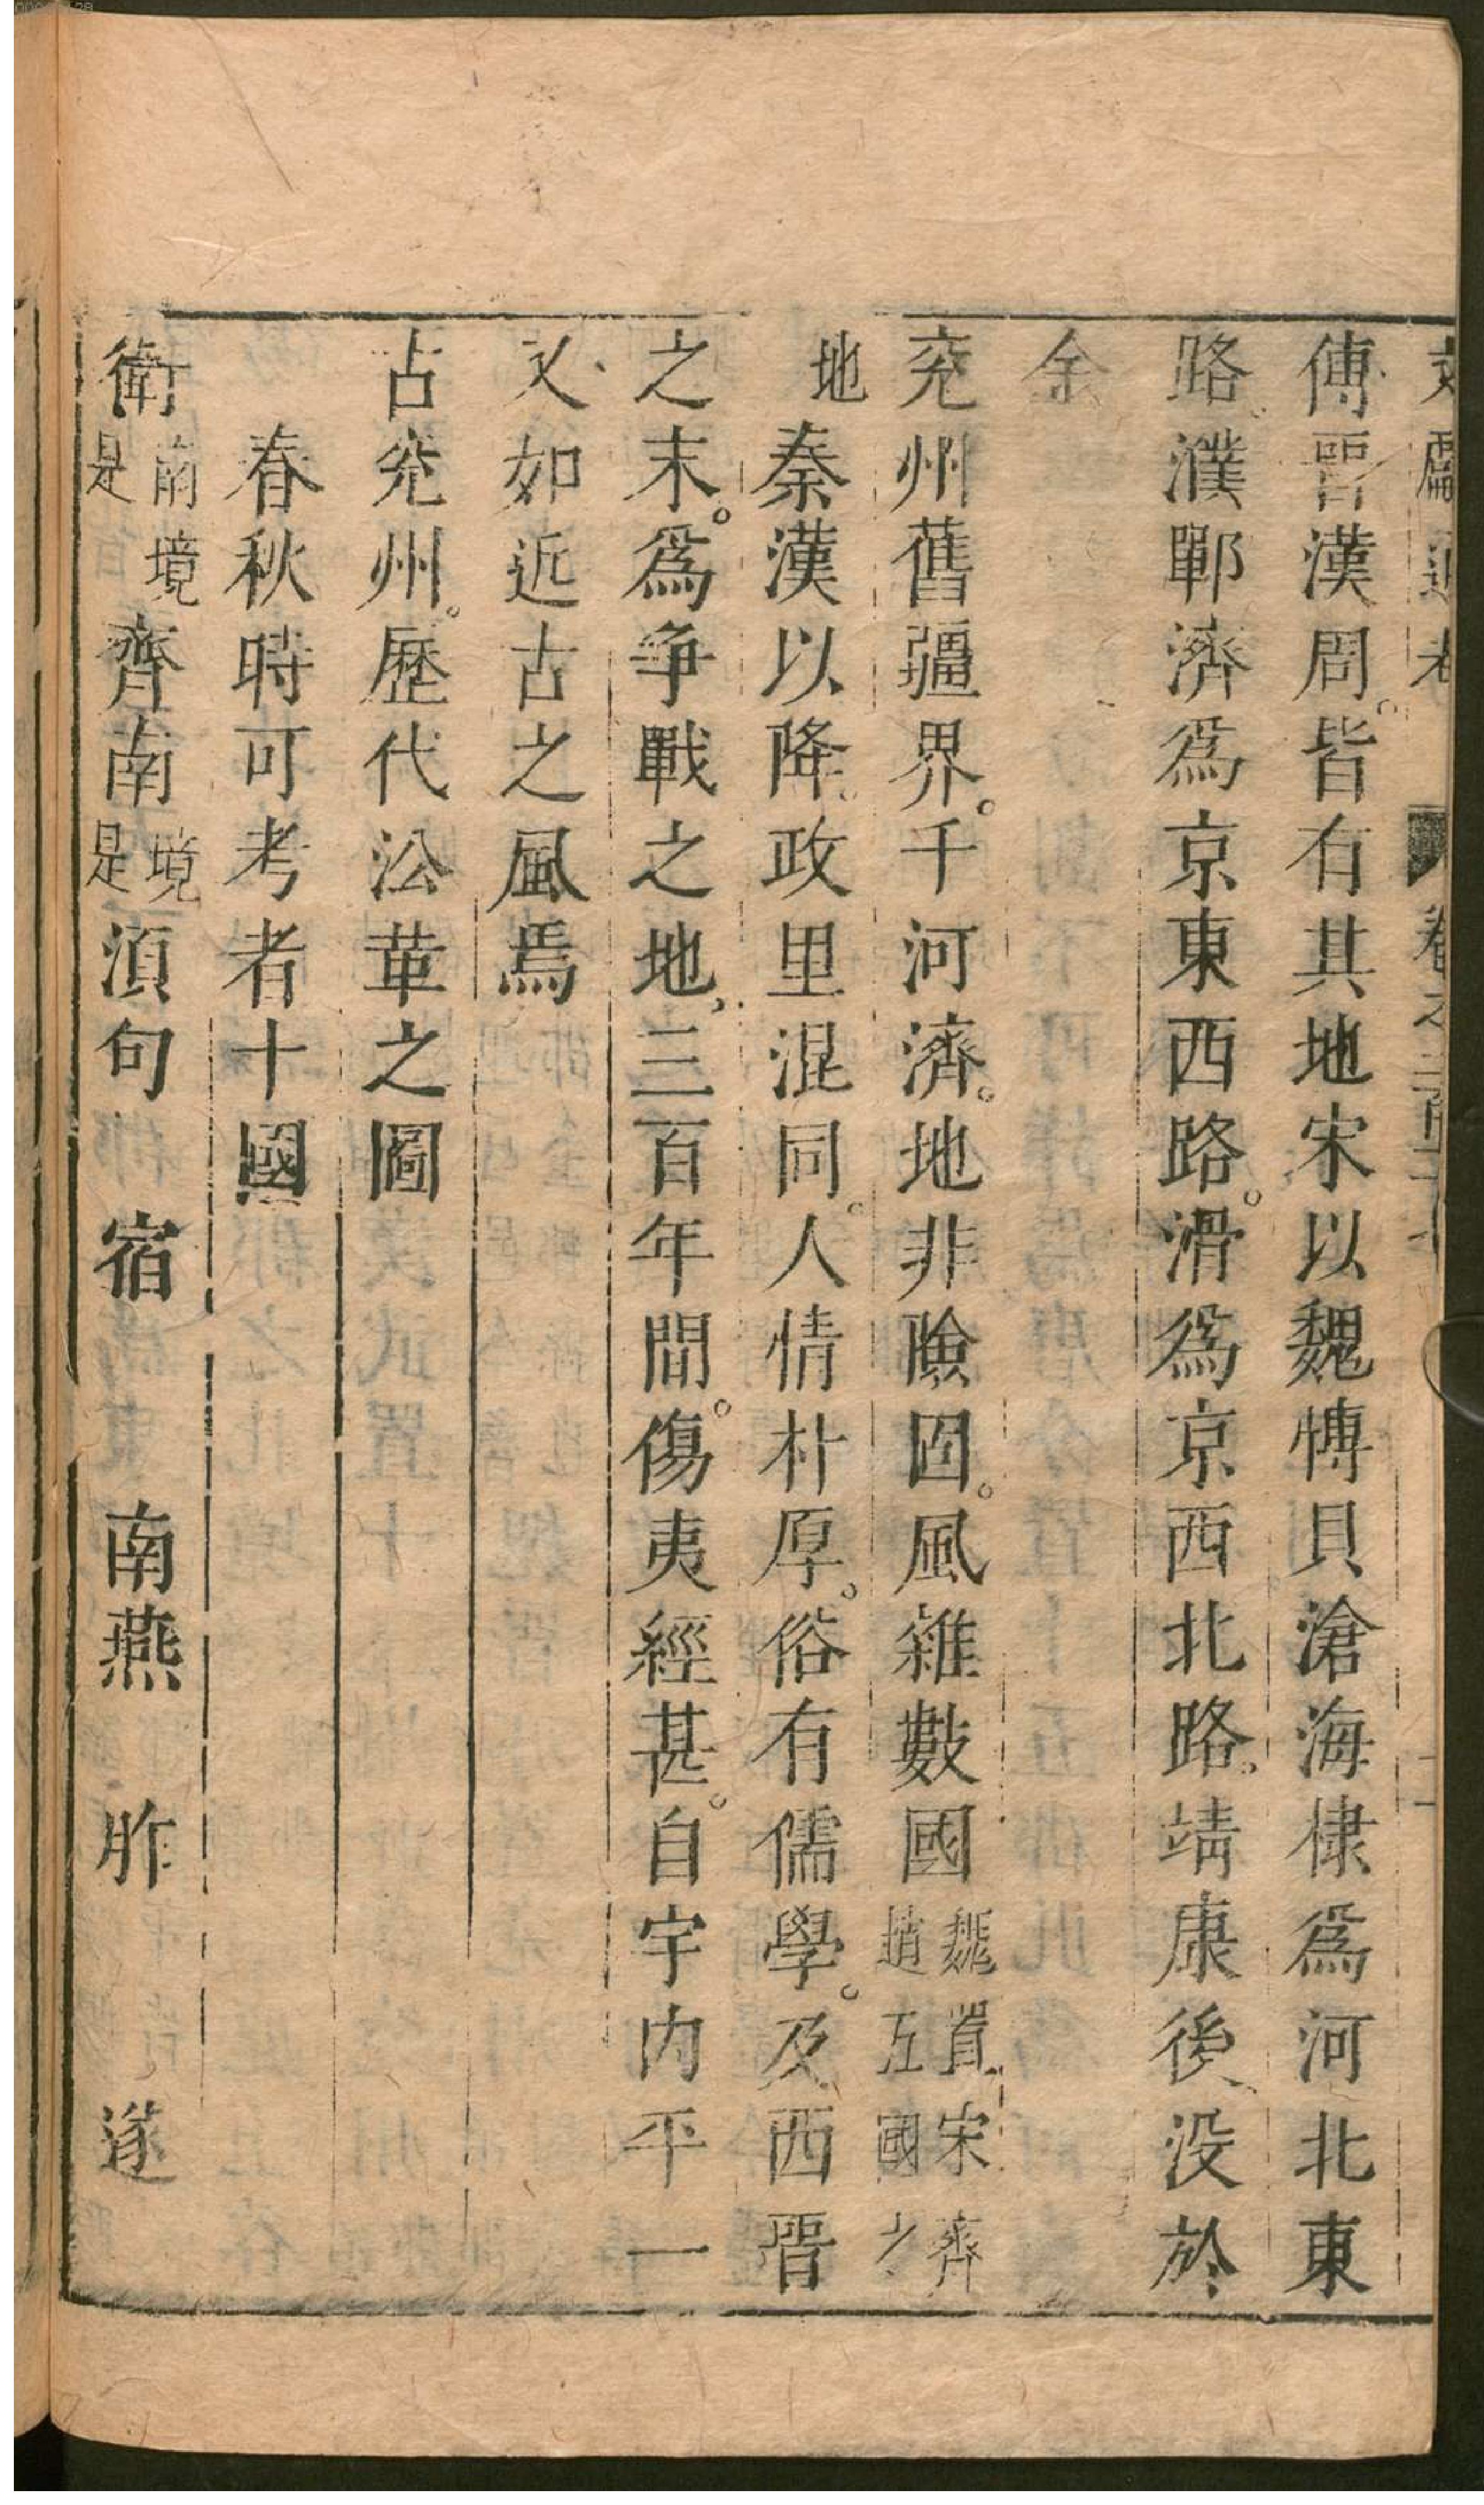 傅晉漢周。皆有其地宋以魏愽貝滄海棣爲河北東
路濮鄆濟爲京東西路。滑爲京西北路。靖康後没於
金
兖州舊疆界。千河濟。地非險固。風雜數國魏晋宋齊趙五國之
地秦漢以降。政里混同。人情朴厚。俗有儒學。及西晉
之末。爲争戰之地三百年間。傷夷經甚。自宇内平一
又如近古之風焉
古兖州。歷代沿革之圖
春秋時可考者十國
衛南境是齊南境是湏句宿南燕胙遂